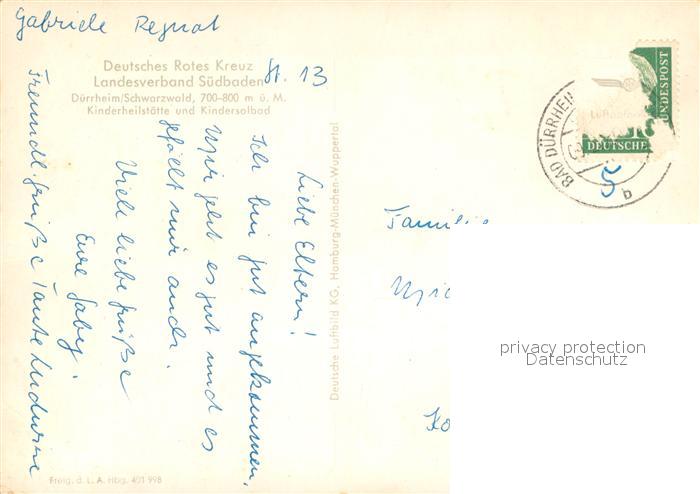 Gabriele Regnat
Deutsches Rotes Kreuz
Landesverband Südbaden
St. 13
Dürrheim/Schwarzwald, 700–800 m ü. M.
Kinderheilstätte und Kindersolbad
Liebe Eltern!
Ich bin gut angekommen,
mir geht es gut und es
gefällt mir auch.
Viele liebe Grüße
Eure Gaby.
Freundl. Grüße Tante
Deutsche Luftbild KG, Hamburg-München-Wuppertal
BUNDESPOST
DEUTSCHE
BAD DÜRRHEI
b
5
Familie
Ko
privacy protection
Datenschutz
Freig. d. L. A. Hbg. 401 998